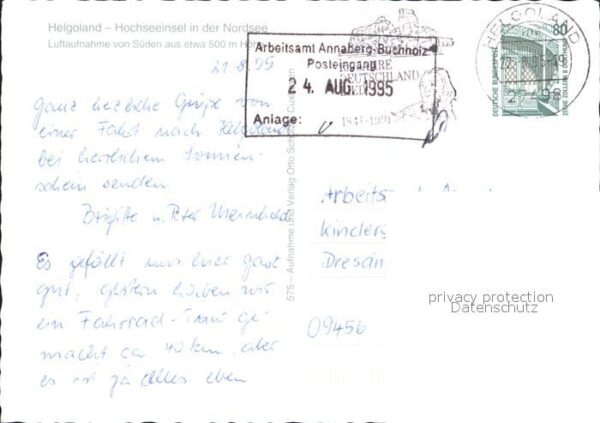 Helgoland – Hochseeinsel in der Nordsee
Luftaufnahme von Süden aus etwa 500 m Hö
21.8.95
Ganz herzliche Grüße von
einer Fahrt nach Helgoland
bei herrlichem Sonnen-
schein senden
Brigitte u. Peter
Es gefällt uns hier ganz
gut, gestern haben wir
ein Fahrrad-Tour ge
macht ca 40 km, aber
es ist ja alles eben
575 – Aufnahme und Verlag Otto Cuxhaven
Arbeitsamt Annaberg-Buchholz
Posteingang
24. AUG. 1995
Anlage:
JAHRE
DEUTSCHLAND
LIED
1841-1991
HELGOLAND
27498
80
DEUTSCHE BUNDESPOST
ZECHE ZOLLERN II DORTMUND
Arbeits
Kinderg
Dresdn
09456
privacy protection
Datenschutz